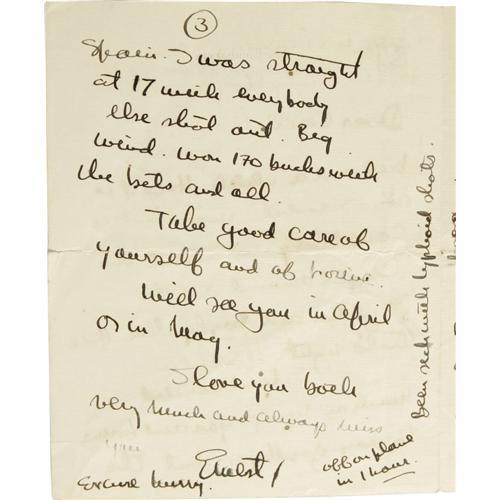 3
Spain. I was straight
at 17 with everybody
else shot out. Big
wind. Won 170 bucks with
the bets and all.
Take good care of
yourself and of
Will see you in April
or in May.
I love you both
very much and always miss
you
Ernest
Excuse hurry.
off on plane
in 1 hour.
Been sick with typhoid shots.